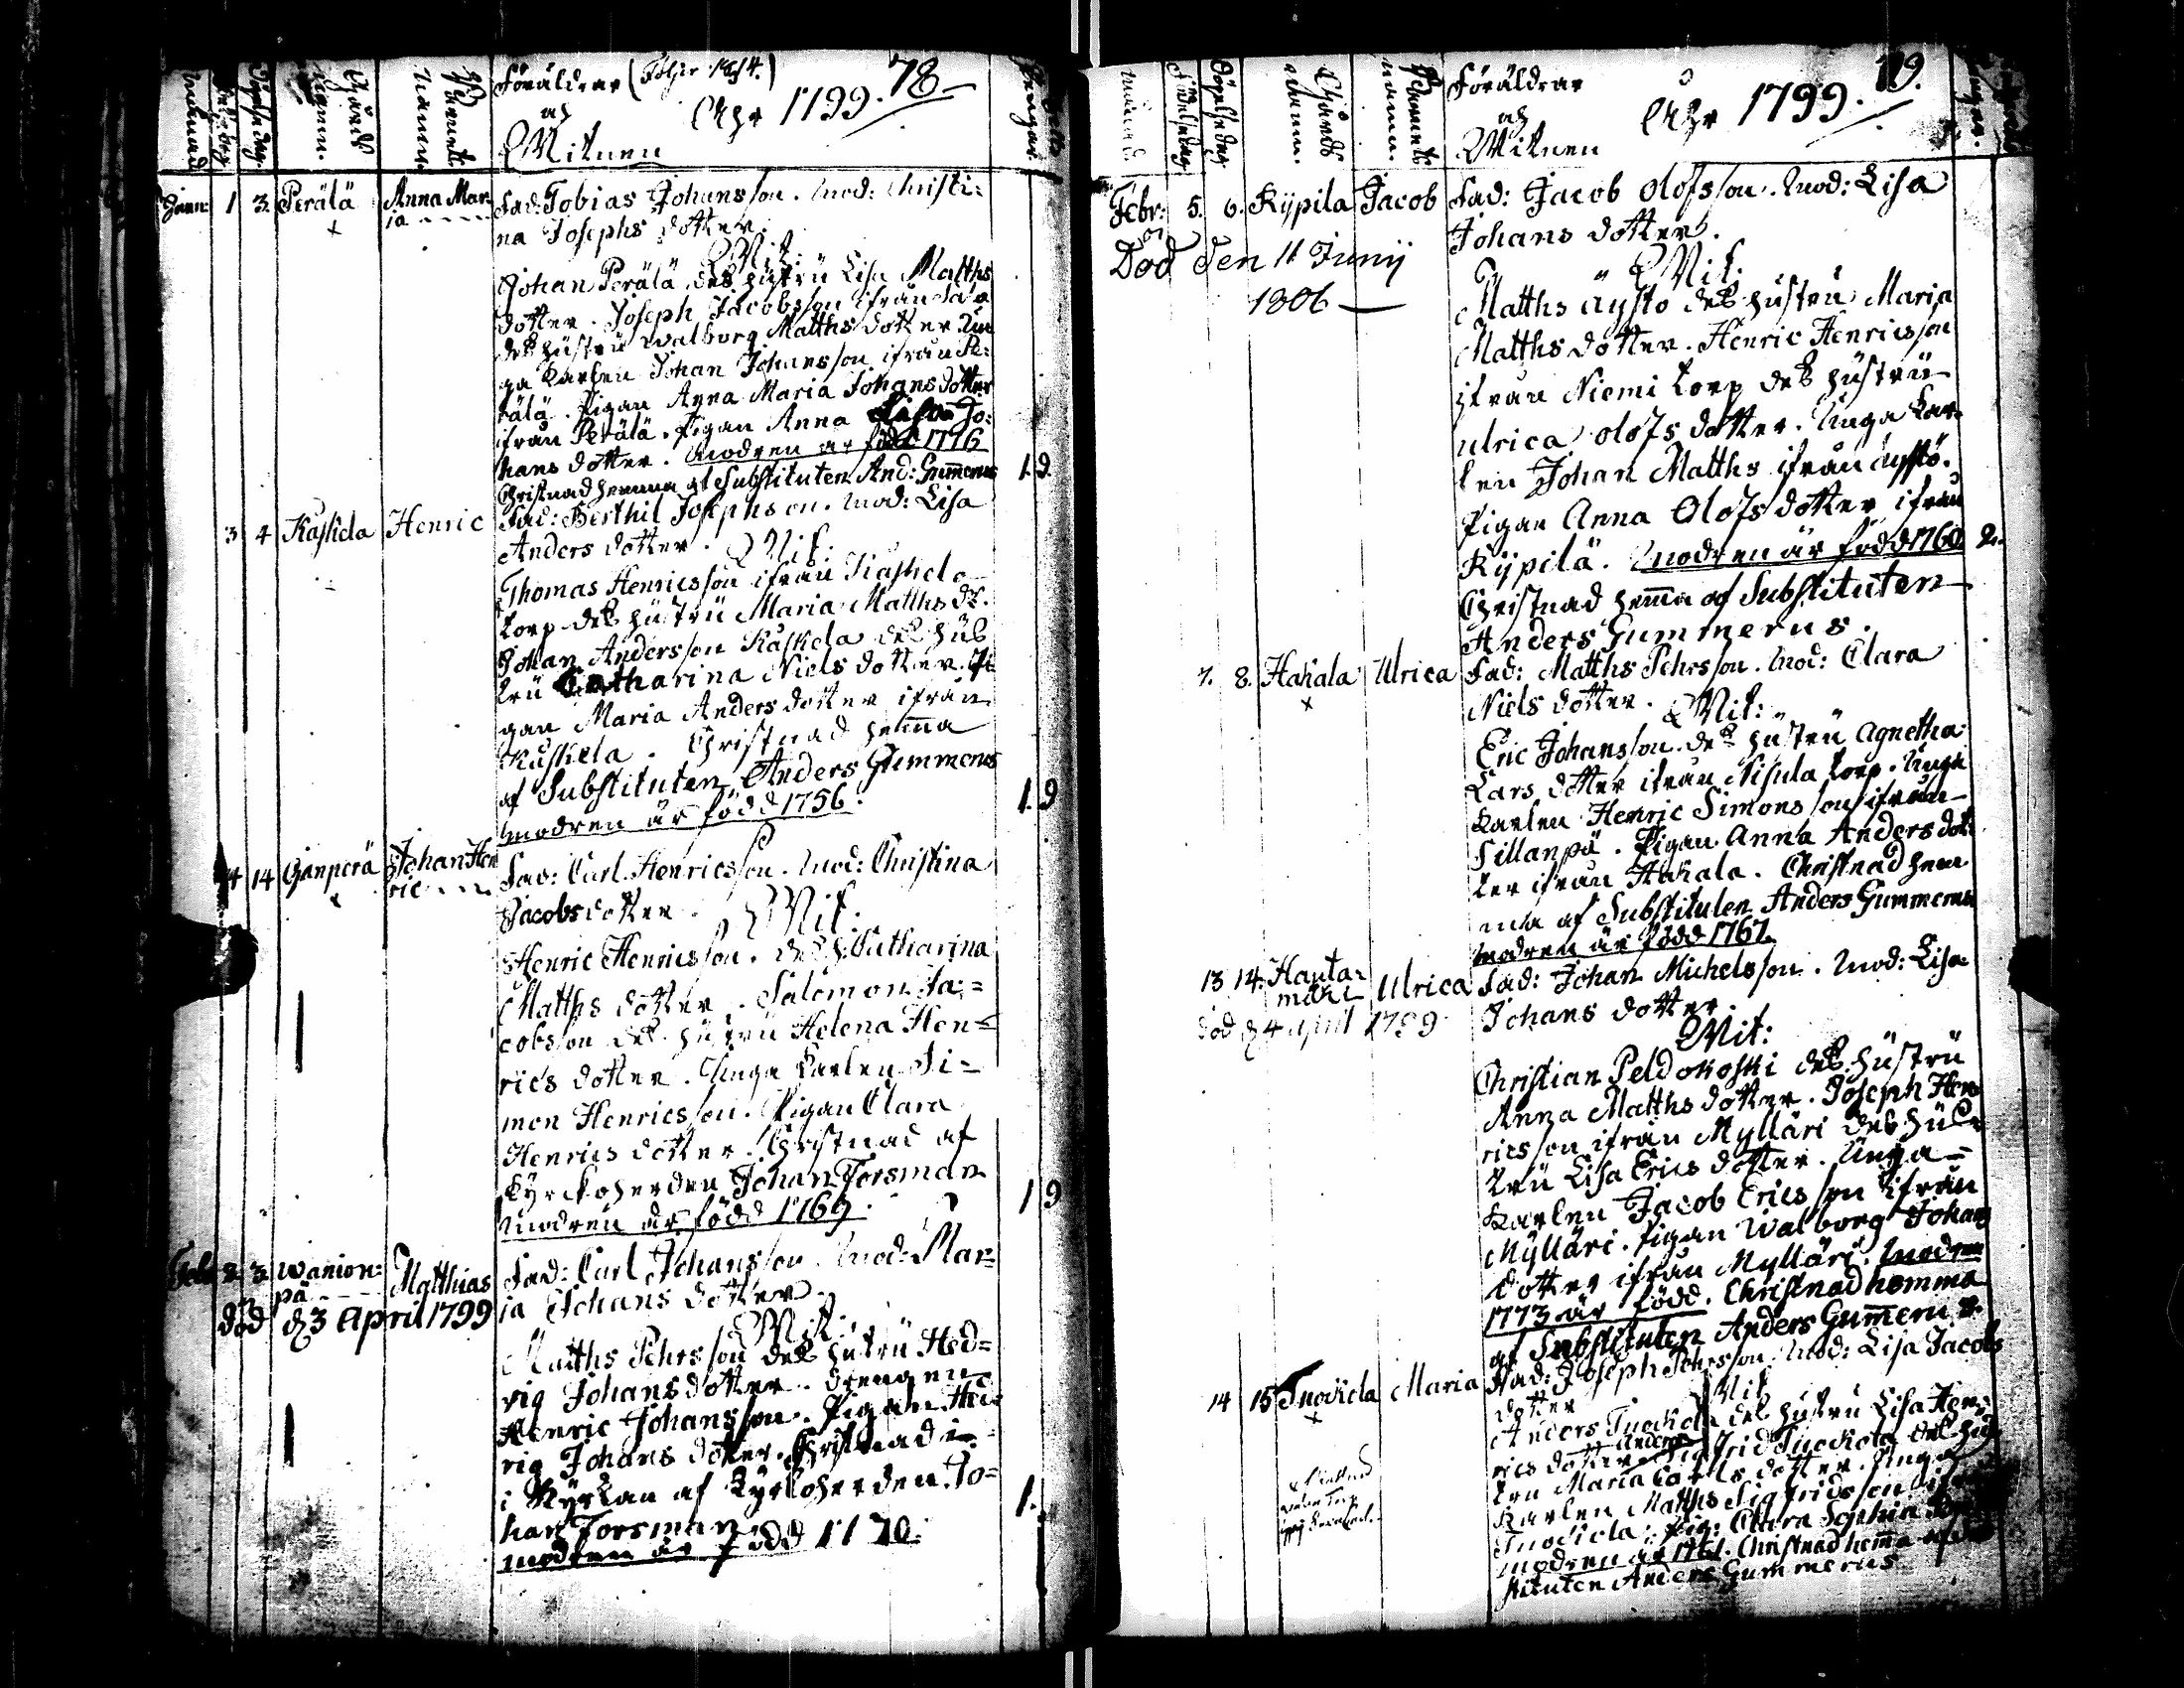 Månad
Födelsedag
Döpelsedag
Gårds namn.
Barnets namn.
Föräldrar
ach
Witnen
Åhr 1799. 78
Janu: 1 3. Perälä Anna Mar= Fad: Tobias Johansson. Mod: Christi=
ia na Josephs dotter.
Wit:
Johan Perälä des hustru Lisa Matths
dotter. Joseph Jacobsson ifrån
des hustru Walborg Matths dotter. Un
ga Karlen Johan Johansson ifrån Pe:
rälä. Pigan Anna Maria Johans dotter
ifrån Perälä. Pigan Anna Jo:
hans dotter. Modren är född 1776
Christnad hemma af Substituten And: Gummerus 1. 9.
3 4 Kaskela Henric Fad: Berthil Josephson. Mod: Lisa
Anders dotter. Wit:
Thomas Henricsson ifrån Kaskela
torp des hustru Maria Matths dr.
Johan Andersson Kaskela des hus
tru Catharina Niels dotter. Pi
gan Maria Anders dotter ifrån
Kaskela. Christnad hemma
af Substituten Anders Gummerus
modren är född 1756. 1. 9
4 14 Gånperä Johan Hen Fad: Carl Henricsson. Mod: Christina
ric Jacobs dotter.
Wit:
Henric Henricsson. des h. Catharina
Matths dotter. Salomon Ja=
cobsson des hustru Helena Hen=
rics dotter. Unga Karlen Si=
mon Henricsson. Pigan Clara
Henrics dotter. Christnad af
Kyrckoherden Johan Forsman
modren är född 1769. 1 9
Feb: 2. 3. Wanion: Matthias Fad: Carl Johansson Mod: Mar=
pä ia Johans dotter.
död d 3 April 1799
Wit:
Matths Pehrsson des hustru Hed=
vig Johans dotter. drengen
Henric Johansson. Pigan Hed
vig Johans dotter. Christnad
i Kyrkan af Kyrkoherden Jo=
han Forsman.
modren är född 1770. 1.
Månad.
Födelsedag
Döpelsedag
Gårds namn.
Barnets namn.
Föräldrar
ach
Witnen
Åhr 1799. 79.
Febr: 5. 6. Kypila Jacob Fad: Jacob Olofsson. Mod: Lisa
Johans dotter.
Död den 11 Junij
1806
Wit:
Matths Äystö des hustru Maria
Matths dotter. Henric Henricsson
ifrån Niemi torp des hustru
Ulrica Olofs dotter. Unga Kar
len Johan Matths ifrån Äystö.
Pigan Anna Olofs dotter ifrån
Kypilä. Modren är född 1760. 2.
Christnad hemma af Substituten
Anders Gummerus.
7. 8. Hakala Ulrica Fad: Matths Pehrsson. Mod: Clara
Niels dotter. Wit:
Eric Johansson. des hustru Agnetha
Lars dotter ifrån Nisula torp. Unga
Karlen Henric Simonsson ifrån
Sillanpä. Pigan Anna Anders dot:
ter ifrån Hakala. Christnad hem
ma af Substituten Anders Gummerus
modren är född 1767.
13 14. Hauta= Ulrica Fad: Johan Michelsson. Mod: Lisa
mäki Johans dotter.
död d 4 April 1799
Wit:
Christian Peldokoski des hustru
Anna Matths dotter. Joseph Hen
ricsson ifrån Mylläri des hus
tru Lisa Erics dotter. Unga
Karlen Jacob Ericsson ifrån
Mylläri. Pigan Walborg Johans
dotter ifrån Mylläri. Modren
1773 är född. Christnad hemma
af Substituten Anders Gummerus.
14 15 Tuockola Maria Fad: Joseph Pehrsson. Mod: Lisa Jacobs
dotter Wit
Anders Tuockola des hustru Lisa Hen:
rics dotter Sigfrid Tuockola des hus
tru Maria Carls dotter. Unga
Karlen Matths Sigfridsson
Tuockola. Pig: Clara Sophia
modren är 1761. Christnad hemma af
stituten Anders Gummerus